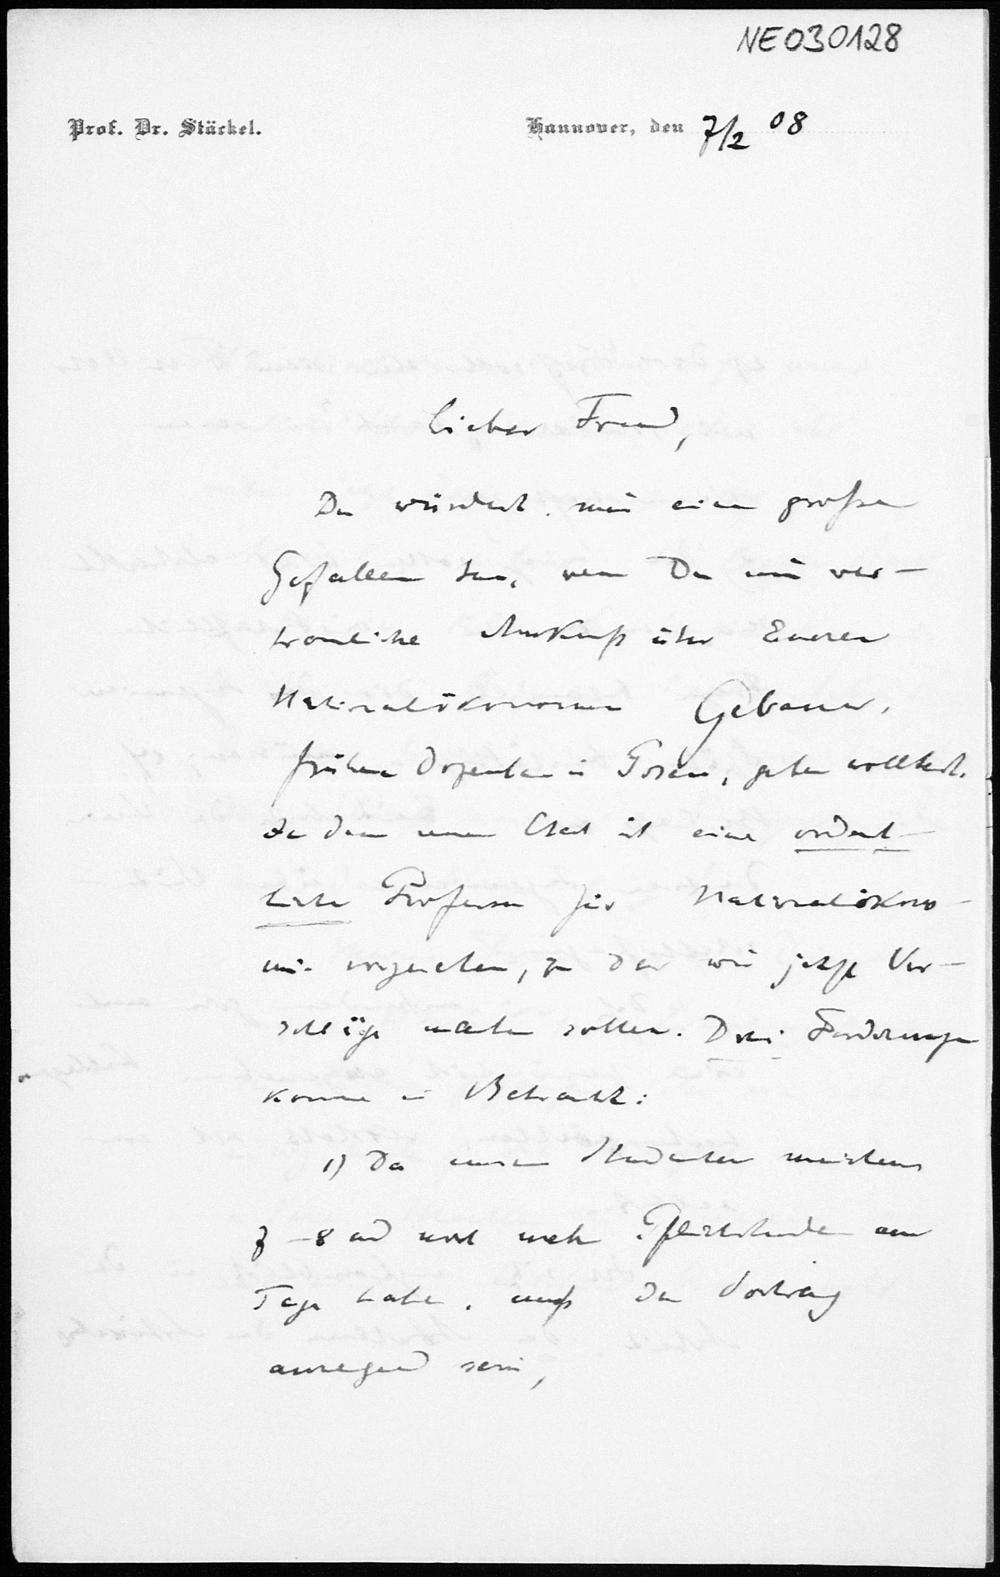 NE030128
Prof. Dr. Stäckel.
Hannover, den 7/2 08
Lieber Freund,
Du würdest mir einen großen
Gefallen tun, wenn Du mir ver-
trauliche Auskunft über Eueren
Nationalökonomen Gebauer,
früheren Dozenten in Posen, geben wolltest.
In dem neuen Etat ist eine ordent-
liche Professur für Nationalökono-
mie vorgesehen, zu der wir jetzt Vor-
schläge machen sollen. Drei Forderungen
kommen in Betracht:
1) Da unsere Studenten meistens
7-8 und noch mehr Pflichtstunden am
Tage haben, muß der Vortrag
anregend sein,